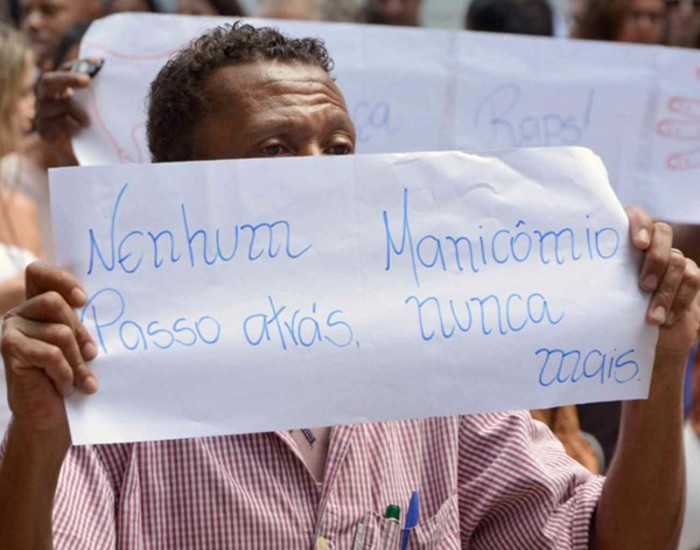 Raps!
Nenhum Manicômio
Passo atrás. nunca
mais.